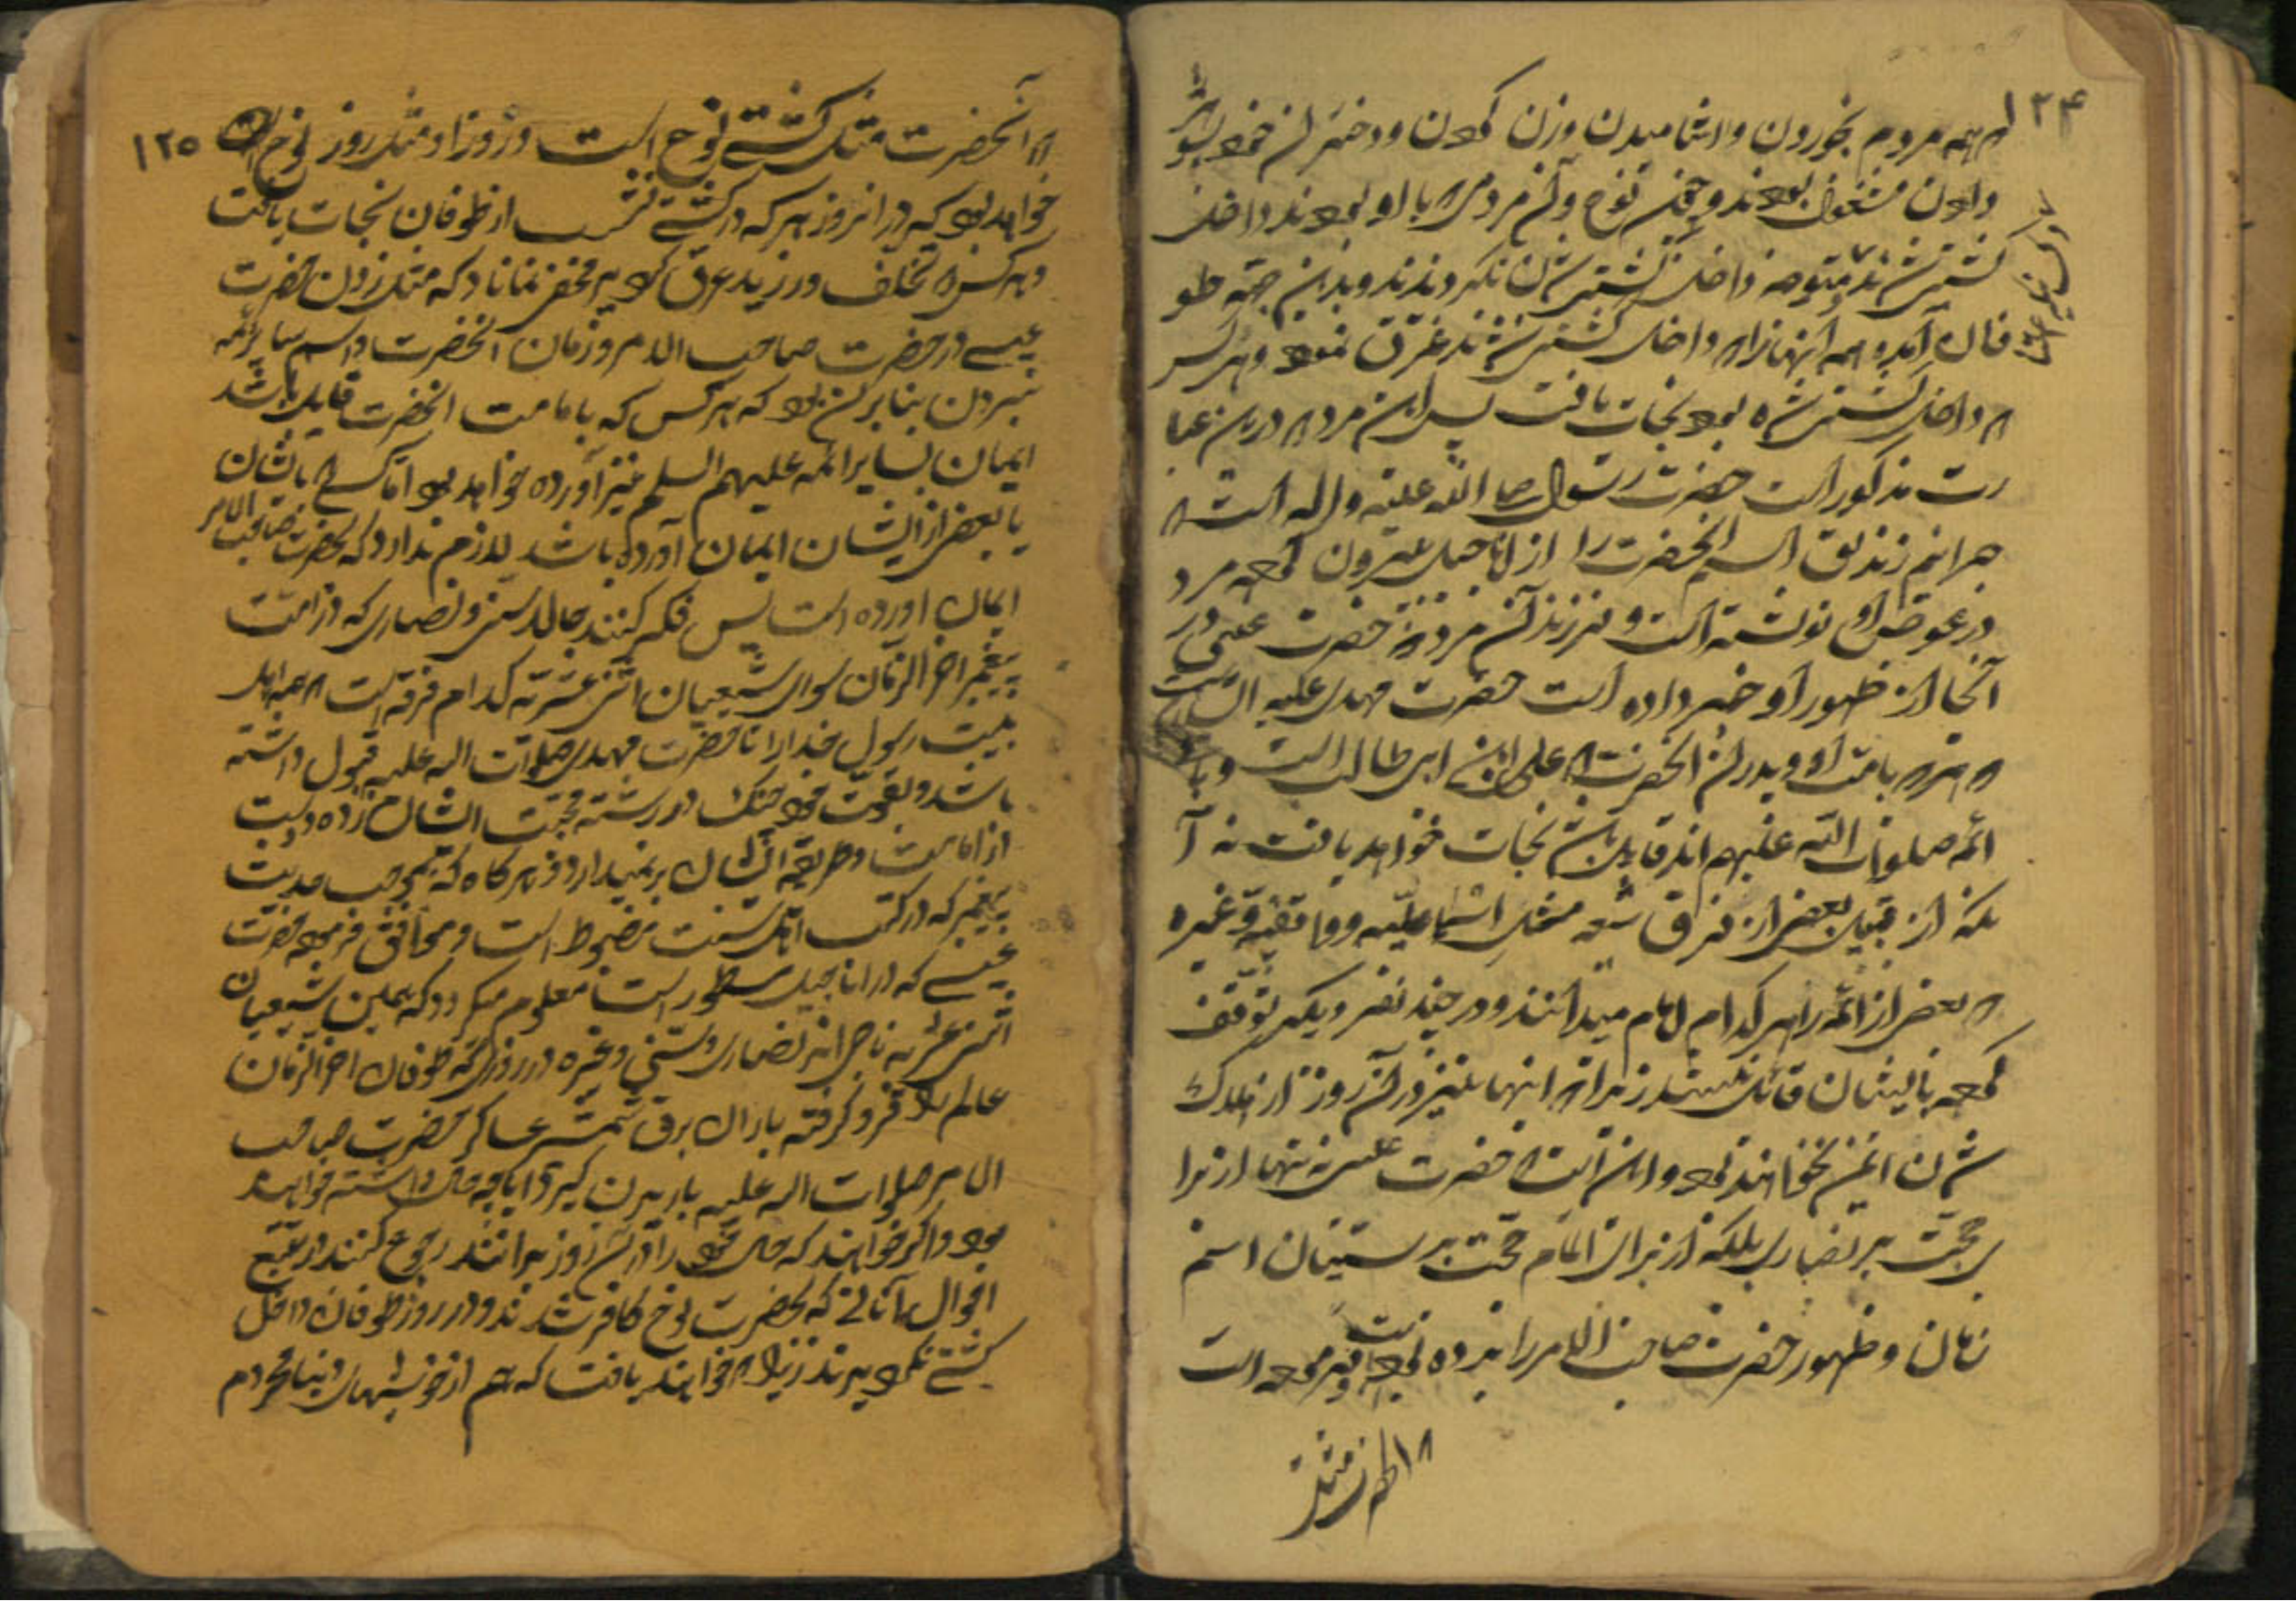 ١٢۴
که همه مردم بخوردن و اشامیدن و زن کردن و دختران خود بشوهر
دادن مشغول بودند و چون نوح و آن مردمی که با او بودند داخل
کشتی شدند متوجه داخل کشتی شدن نکردیدند و بدین جهة طو
فان آمد و همه آنهائی را که داخل کشتی نشدند غرق نمود و هر کس
که داخل کشتی شده بود نجات یافت پس این مرد که در این عبا
رت مذکور است حضرت رسول صلی الله علیه و اله است که
جرانیم زندیق اسم انحضرت را از اناجیل بیرون کرده مرد
در عوض او نوشته است و فرزند آن مرد که حضرت عیسی در
آنجا از ظهور او خبر داده است حضرت مهدی علیه السلام است
که هر که بامامت او و پدران انحضرت که علی ابن ابی طالب است و باقی
ائمه صلوات الله علیهم اند قایل باشد نجات خواهد یافت نه آ
نکه از قبیل بعضی از فرق شیعه مثل اسماعیلیه و واقفیه و غیره
که بعضی از ائمه را هر کدام امام میدانند و در چند نفر دیکر توقف
کرده بایشان قائل نیستند زیرا که اینها نیز در آن روز از هلاک
شدن ایمن نخواهند بود و این است که حضرت عیسی نه تنها از برا
ی حجت بر نصاری بلکه از برای اتمام حجت بر سنیان اسم
زمان و ظهور حضرت صاحب الامر را برده بود و فرموده است
که اظهر من
که آنحضرت مثل کشتی نوح است و روز او مثل روز نوح
١٢٥
خواهد بود که در انروز هر که در کشتی نشست از طوفان نجات یافت
و هر کس که تخلف ورزید غرق کردید مخفی نماناد که مثل زدن حضرت
عیسی در حضرت صاحب الامر و زمان انحضرت و اسم سایر ائمه
نبردن بنا بر آن بود که هر کس که بامامت انحضرت قایل باشد
ایمان بسایر ائمه علیهم السلم نیز آورده خواهد بود اما کسی که باشان
یا بعضی از ایشان ایمان آورده باشد لازم ندارد که بحضرت صاحب الامر
ایمان اورده است پس فکر کنند حالا سنی و نصاری که در امت
پیغمبر اخر الزمان سوای شیعیان اثنی عشریه کدام فرقه است که همه اهل
بیت رسول خدا را تا حضرت مهدی صلوات اله علیه قبول داشته
باشد و بقوت خود چنک در رشته محبت ایشان زده دست
از امامت و طریقه ایشان برنمیدارد و هر کاه که بموجب حدیث
پیغمبر که در کتب اهل سنت مضبوط است و موافق فرموده حضرت
عیسی که در اناجیل مسطور است معلوم میکردد که همین شیعیان
اثنی عشریه ناجی اند نصاری و سنی و غیره در روزی که طوفان اخر الزمان
عالم را فرو کرفته باران برق شمشیر عساکر حضرت صاحب
الامر صلوات اله علیه باریدن کیرد ایا چه حال داشته خواهند
بود و اکر خواهند که حال خود را در آن روز بدانند رجوع کنند در تتبع
احوال آنانی که بحضرت نوح کافر شدند و در روز طوفان داخل
کشتی نکردیدند زیرا که خواهند یافت که هم از خوشیهای دنیا محروم